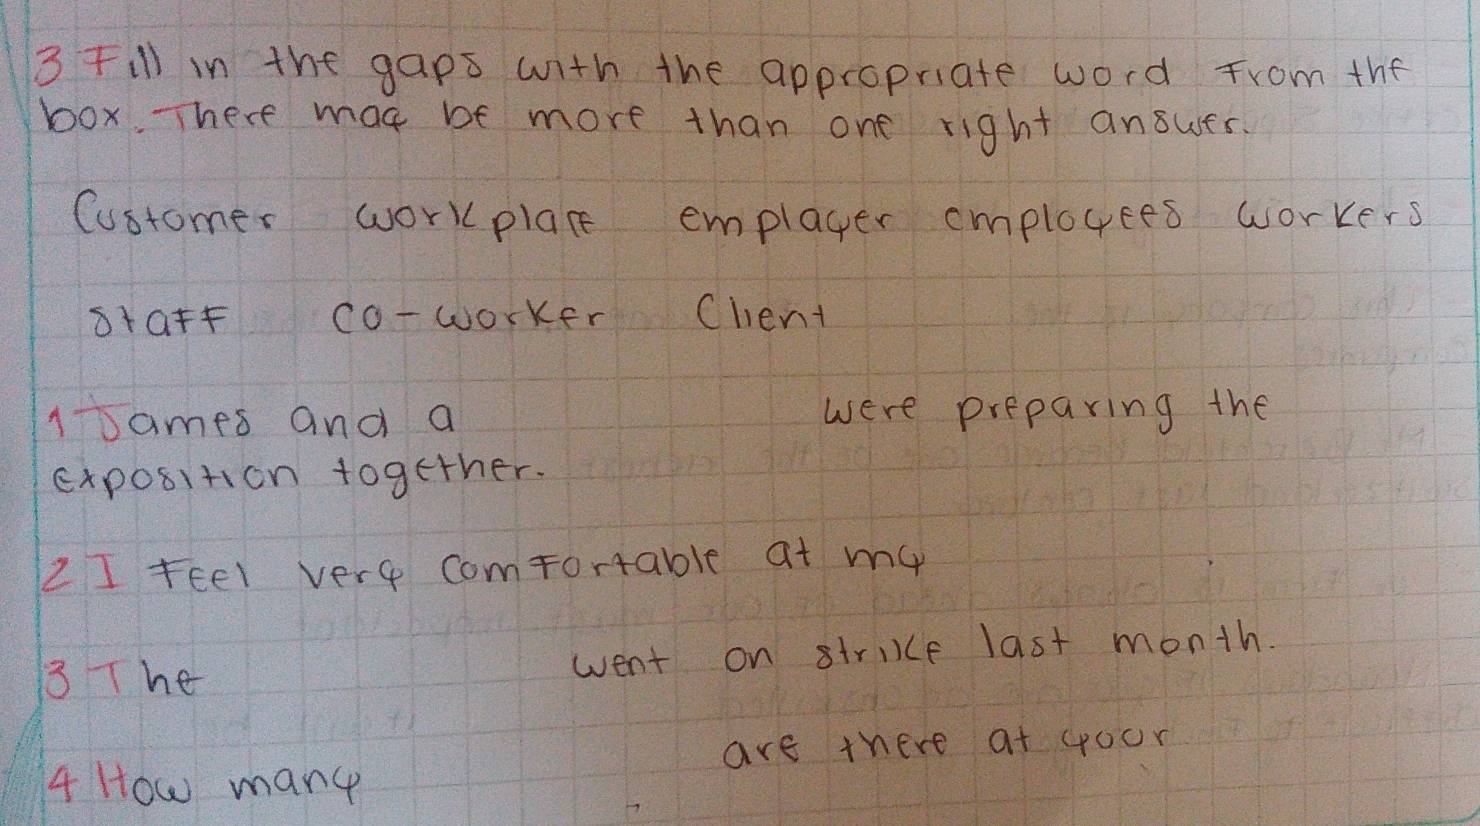 3 Fill in the gaps with the appropriate word from the
box. There may be more than one right answer.
Customer workplace employer employees workers
staff co-worker Client
1 James and a were preparing the
exposition together.
2 I feel very comfortable at my
3 The went on strike last month.
4 How many are there at your